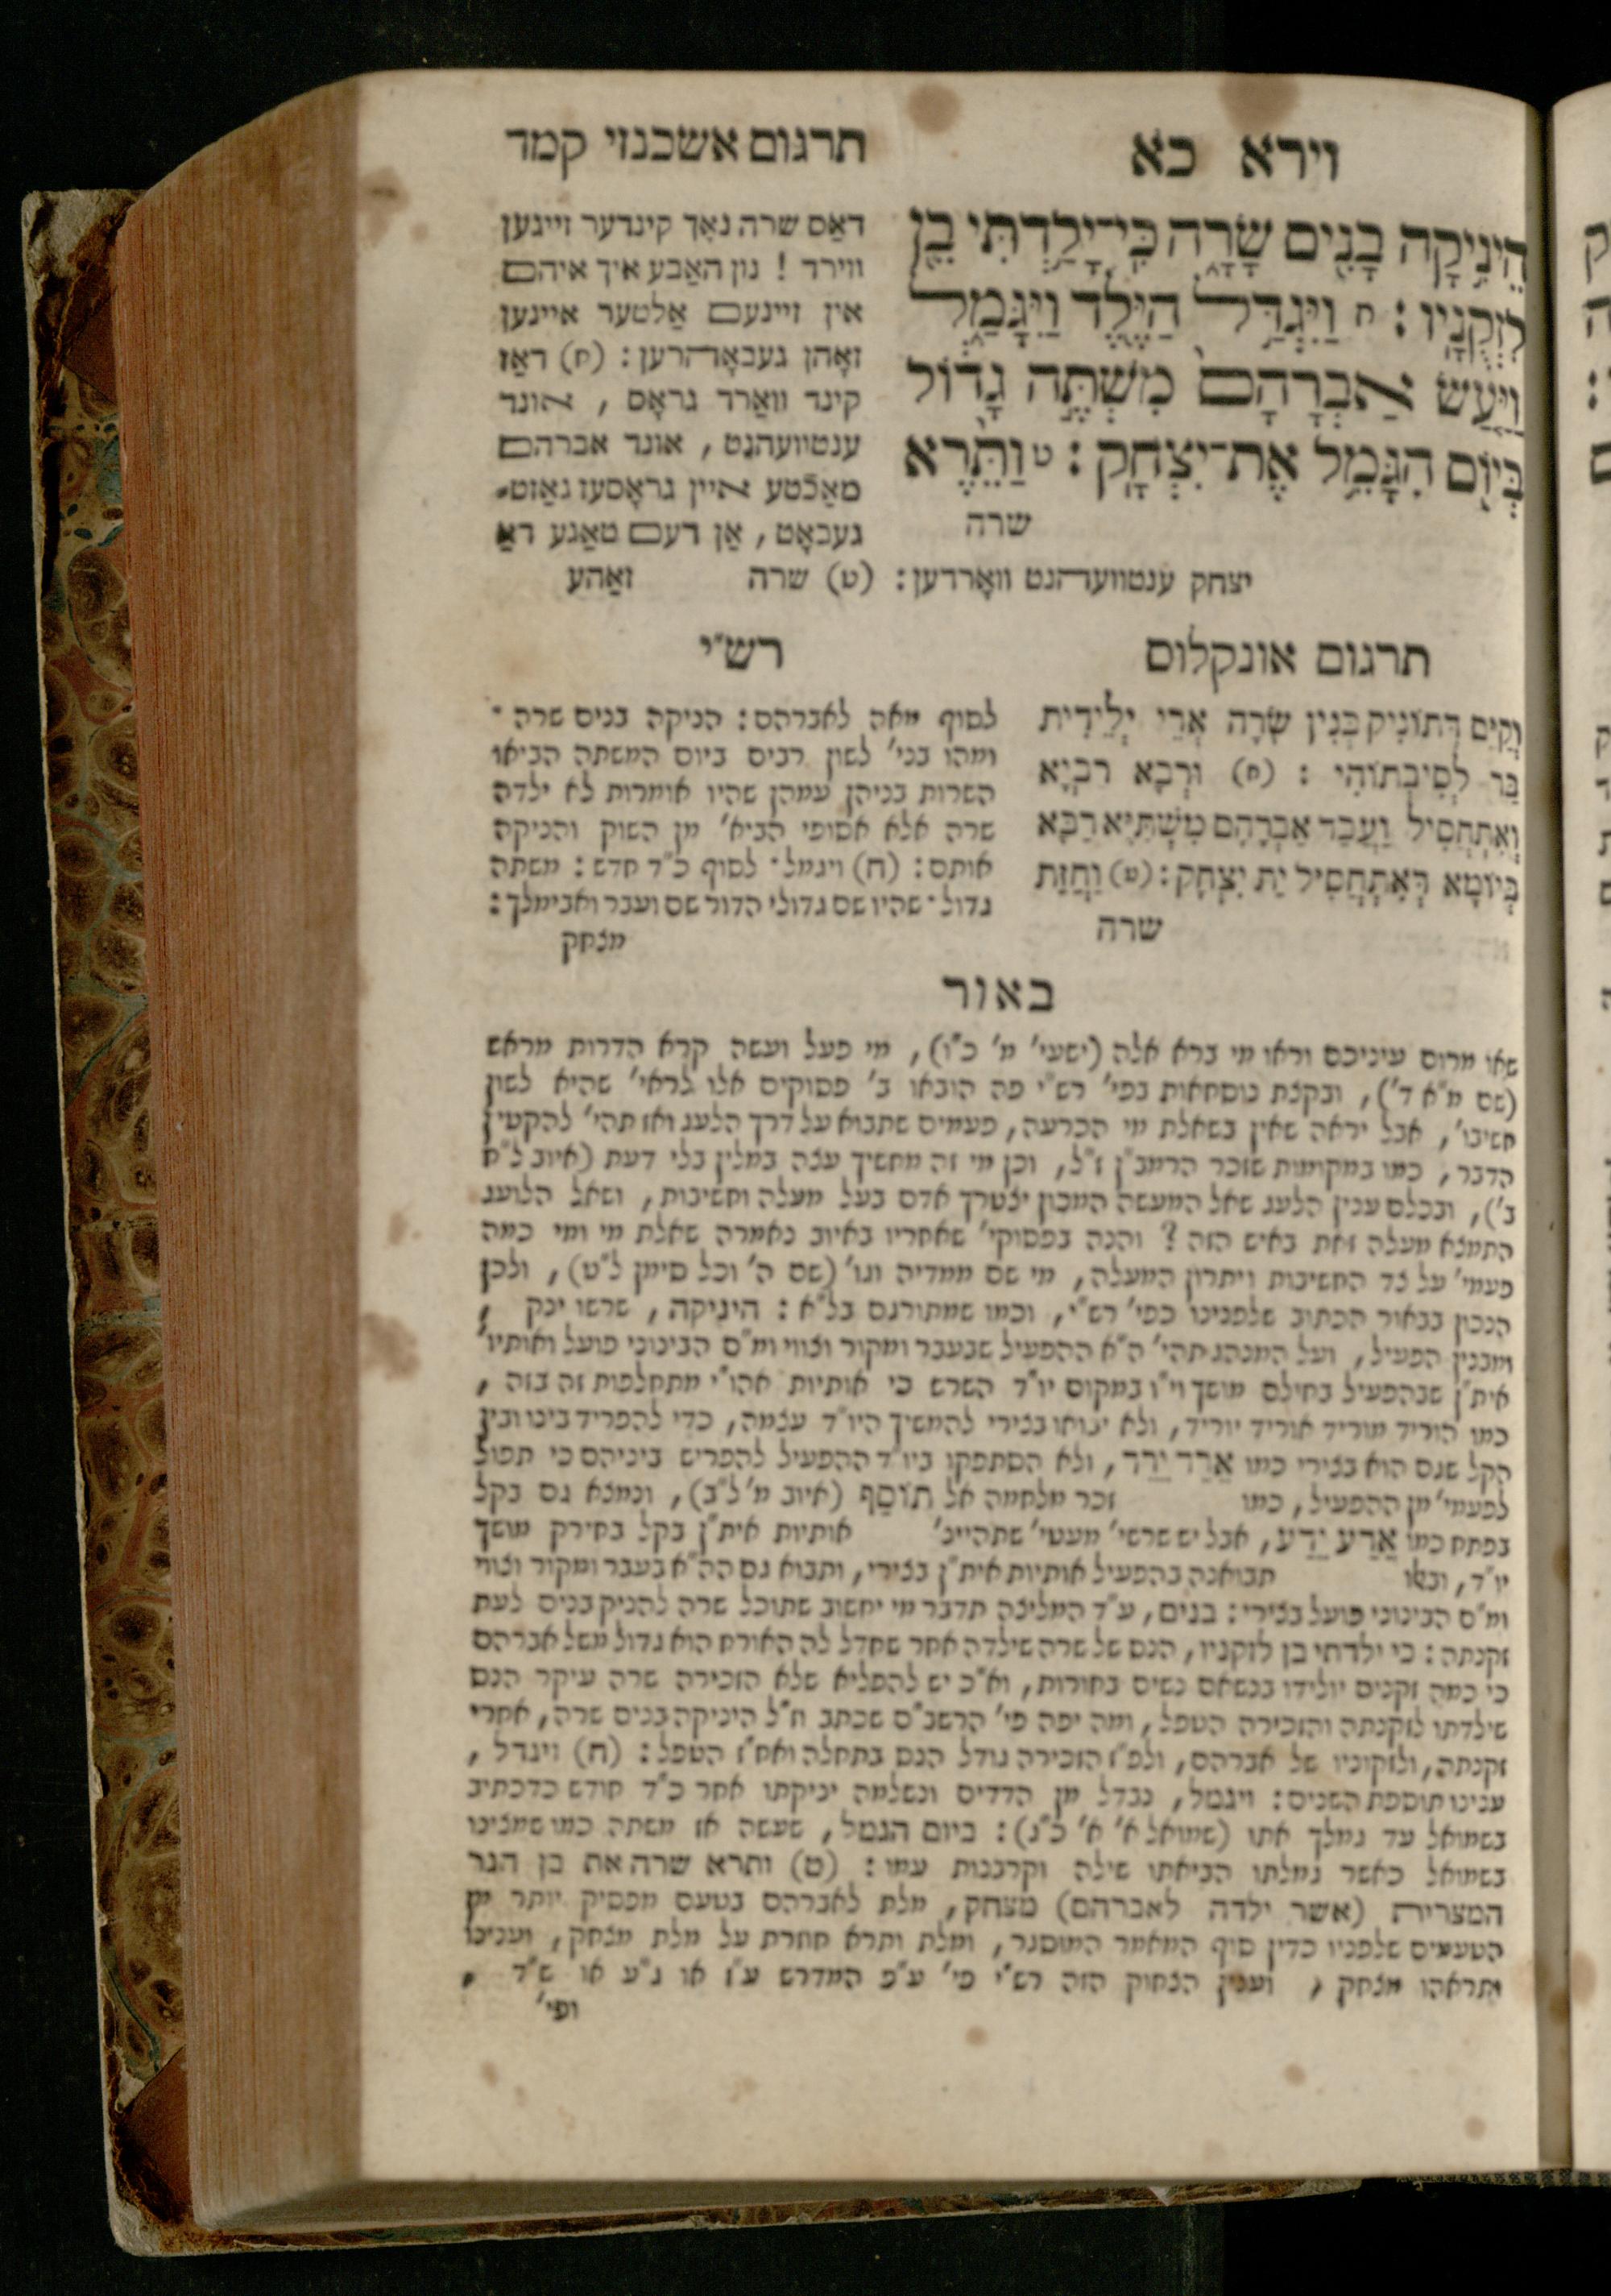 וירא כא
תרגום אשכנזי קמד
הֵינִיקָה בָנִים שָׂרָה כִּי־יָלַדְתִּי בֵן
לִזְקֻנָיו : ח וַיִּגְדַּל הַיֶּלֶד וַיִּגָּמַל
וַיַּעַשׂ אַבְרָהָם מִשְׁתֶּה גָדוֹל
בְּיוֹם הִגָּמֵל אֶת־יִצְחָק : ט וַתֵּרֶא
שרה
דאַס שרה נאָך קינדער זייגען
ווירד ! נון האַבע איך איהם
אין זיינעם אַלטער איינען
זאָהן געבאָהרען : (ח) דאַז
קינד וואַרד גראָס , אונד
ענטוועהנט , אונד אברהם
מאַכטע איין גראָסעז גאַזט־
געבאָט , אַן דעם טאַגע דאַ
יצחק ענטוועהנט וואָרדען : (ט) שרה זאַהע
תרגום אונקלוס
וְקַיִּם דְּתוֹנִיק בְּנִין שָׂרָה אֲרֵי יְלֵידִית
בַּר לְסִיבְתוֹהִי : (ח) וּרְבָא רַבְיָא
וְאִתְחֲסִיל וַעֲבַד אַבְרָהָם מִשְׁתְּיָא רַבָּא
בְּיוֹמָא דְּאִתְחֲסִיל יַת יִצְחָק : (ט) וַחֲזַת
שרה
רש״י
לסוף מאה לאברהם : הניקה בנים שרה ־
ומהו בני׳ לשון רבים ביום המשתה הביאו
השרות בניהן עמהן שהיו אומרות לא ילדה
שרה אלא אסופי הביא׳ מן השוק והניקה
אותם : (ח) ויגמל ־ לסוף כ״ד חדש : משתה
גדול ־ שהיו שם גדולי הדור שם ועבר ואבימלך :
מצחק
באור
שאו מרום עיניכם וראו מי ברא אלה (ישעי׳ מ׳ כ״ו) , מי פעל ועשה קרא הדרות מראש
(שם מ״א ד׳) , ובקצת נוסחאות בפי׳ רש״י פה הובאו ב׳ פסוקים אלו לראי׳ שהיא לשון
חשיבו׳ , אבל יראה שאין בשאלת מי הכרעה , פעמים שתבוא על דרך הלעג ואז תהי׳ להקטין
הדבר , כמו במקומות שזכר הרמב״ן ז״ל , וכן מי זה מחשיך עצה במלין בלי דעת (איוב ל״ח
ב׳) , ובכלם ענין הלעג שאל המעשה המכון יצטרך אדם בעל מעלה וחשיבות , ושאל הלועג
התמצא מעלה זאת באיש הזה ? והנה בפסוקי׳ שאחריו באיוב נאמרה שאלת מי ומי כמה
פעמי׳ על צד החשיבות ויתרון המעלה , מי שם ממדיה וגו׳ (שם ה׳ וכל סימן ל״ט) , ולכן
הנכון בבאור הכתוב שלפנינו כפי׳ רש״י , וכמו שמתורגם בל״א : היניקה , שרשו ינק ,
ומבנין הפעיל , ועל המנהג תהי׳ ה״א ההפעיל שבעבר ומקור וצווי ומ״ם הבינוני פועל ואותיו׳
אית״ן שבהפעיל בחילם מושך וי״ו במקום יו״ד השרש כי אותיות אהו״י מתחלפות זה בזה ,
כמו הוריד מוריד אוריד יוריד , ולא יבואו בצירי להמשיך היו״ד עצמה , כדי להפריד בינו ובין
הקל שגם הוא בצירי כמו אֵרֵד יֵרֵד , ולא הסתפקו ביו״ד ההפעיל להפריש ביניהם כי תפול
לפעמי׳ מן ההפעיל , כמו זכר מלחמה אל תּוֹסַף (איוב מ׳ ל״ב) , ונמצא גם בקל
בפתח כמו אֵרַע יֵדַע , אבל יש שרשי׳ מעטי׳ שתהיינ׳ אותיות אית״ן בקל בחירק מושך
יו״ד , ובאלו תבואנה בהפעיל אותיות אית״ן בצירי , ותבוא גם הה״א בעבר ומקור וצווי
ומ״ם הבינוני פועל בצירי : בנים , ע״ד המליצה תדבר מי יחשוב שתוכל שרה להניק בנים לעת
זקנתה : כי ילדתי בן לזקניו , הנם של שרה שילדה אחר שחדל לה האורח הוא גדול משל אברהם
כי כמה זקנים יולידו בנשאם נשים בחורות , וא״כ יש להפליא שלא הזכירה שרה עיקר הנם
שילדתו לזקנתה והזכירה הטפל , ומה יפה פי׳ הרשב״ם שכתב וז״ל היניקה בנים שרה , אחרי
זקנתה , ולזקוניו של אברהם , ולפ״ז הזכירה גודל הנם בתחלה ואח״ז הטפל : (ח) ויגדל ,
ענינו תוספת השנים : ויגמל , נבדל מן הדדים ונשלמה יניקתו אחר כ״ד חודש כדכתיב
בשמואל עד גמלך אתו (שמואל א׳ א׳ כ״ג) : ביום הגמל , שעשה אז משתה כמו שמצינו
בשמואל כאשר גמלתו הביאתו שילה וקרבנות עמו : (ט) ותרא שרה את בן הגר
המצרית (אשר ילדה לאברהם) מצחק , מלת לאברהם בטעם מפסיק יותר מן
הטעמים שלפניו כדין סוף המאמר המוסגר , ומלת ותרא חוזרת על מלת מצחק , וענינו
ותראהו מצחק , וענין הצחוק הזה רש״י פי׳ ע״פ המדרש ע״ז או ג״ע או ש״ד ,
ופי׳